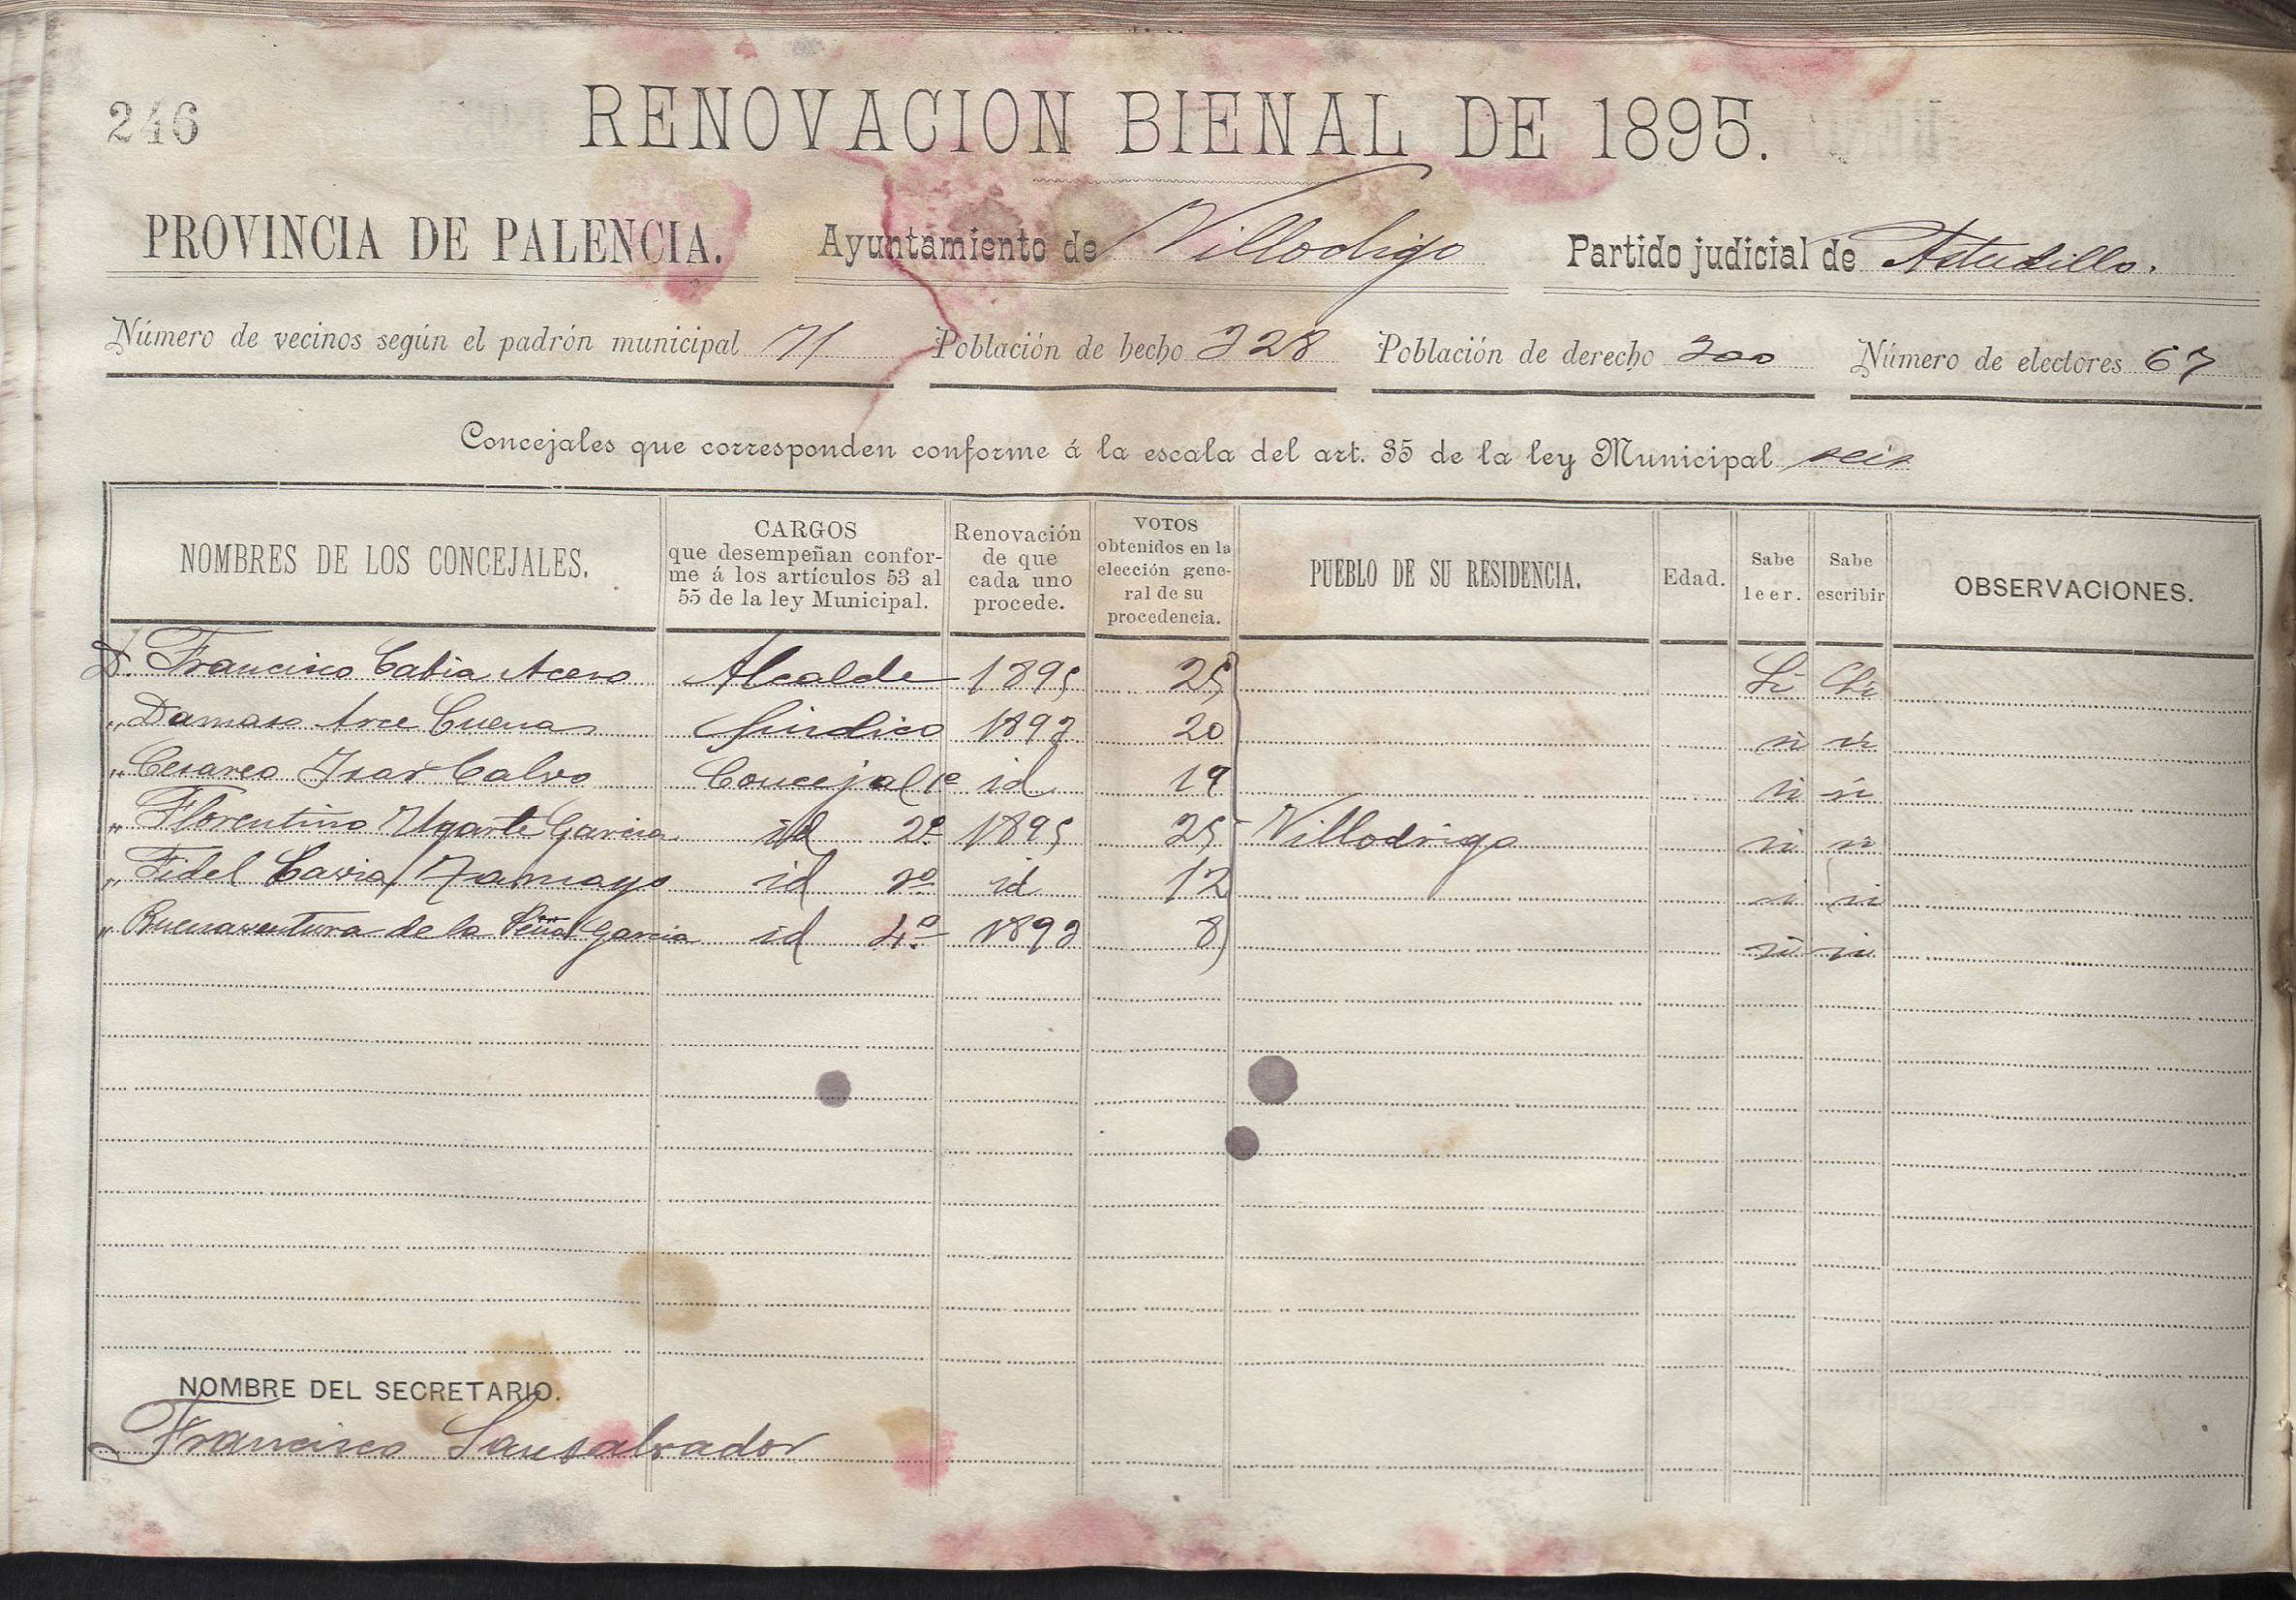 246
RENOVACION BIENAL DE 1895.
PROVINCIA DE PALENCIA. Ayuntamiento de Villodrigo Partido judicial de Astudillo.
Número de vecinos según el padrón municipal 71 Población de hecho 328 Población de derecho 300 Número de electores 67
Concejales que corresponden conforme á la escala del art. 35 de la ley Municipal seis
NOMBRES DE LOS CONCEJALES.
CARGOS
que desempeñan confor-
me á los artículos 53 al
55 de la ley Municipal.
Renovación
de que
cada uno
procede.
VOTOS
obtenidos en la
elección gene-
ral de su
procedencia.
PUEBLO DE SU RESIDENCIA.
Edad.
Sabe
leer.
Sabe
escribir
OBSERVACIONES.
D. Francisco Cabia Acero Alcalde 1895 25 Si Si
„ Damaso Arce Cuena Sindico 1893 20 si si
„ Cesareo Isar Calvo Concejal 1º id 19 si si
„ Florentino Ugarte Garcia id 2º 1895 25 Villodrigo si si
„ Fidel Tamayo id 3º id 12 si si
„ Buenaventura de la Peña Garcia id 4º 1893 8 si si
NOMBRE DEL SECRETARIO.
Francisco Sansalvador